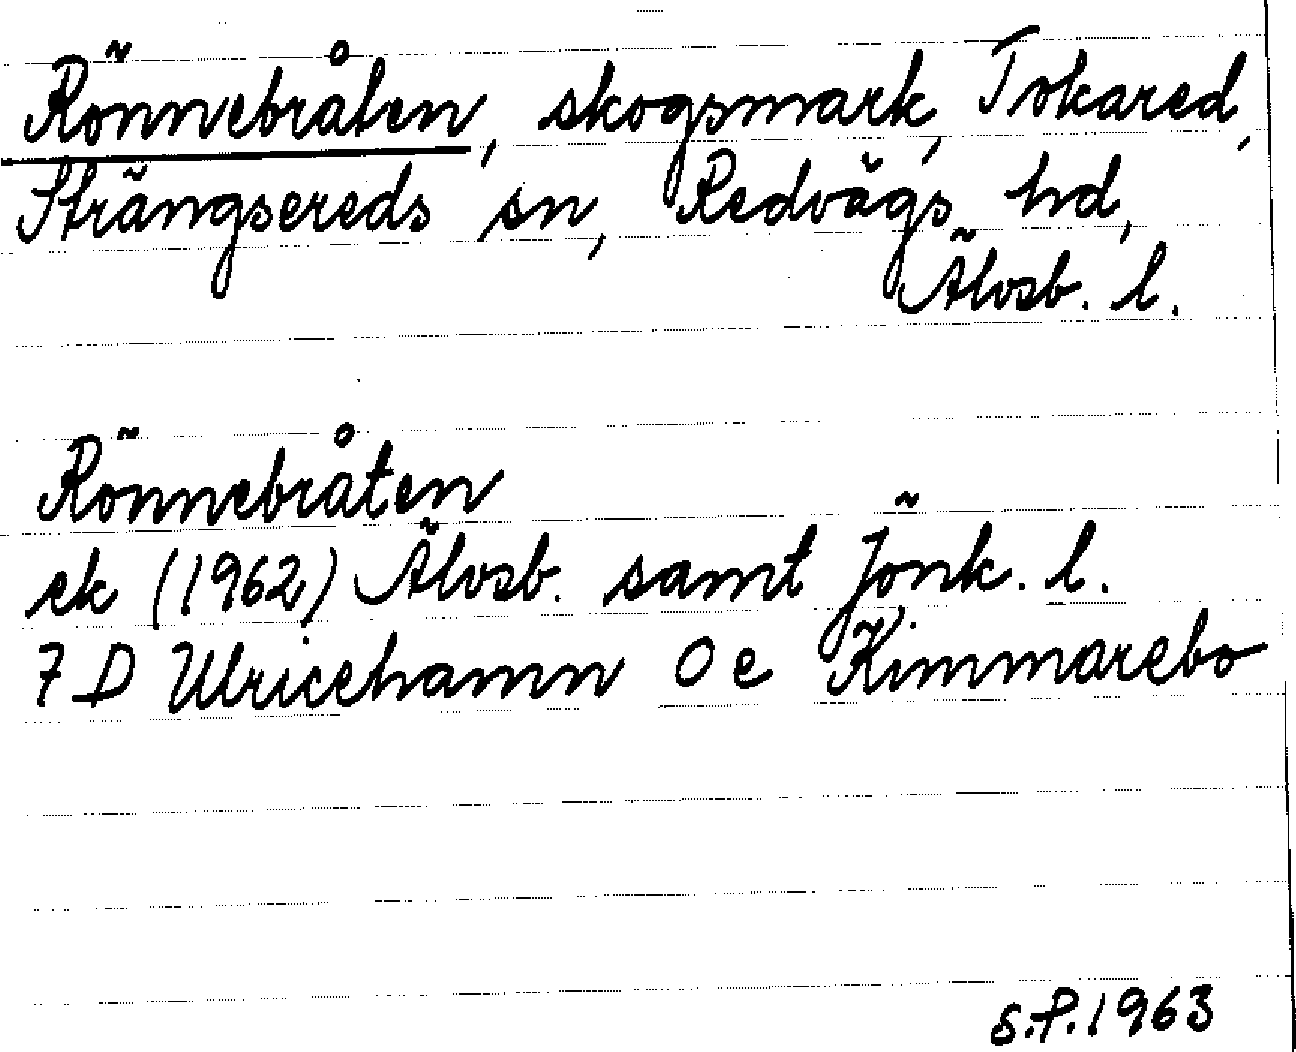 Rönnebråten, skogsmark, Tokared,
Strängsereds sn, Redvägs hd,
Älvsb. l.
Rönnebråten
ek (1962) Älvsb. samt Jönk. l.
7 D Ulricehamn 0 e Kimmarebo
S.P. 1963